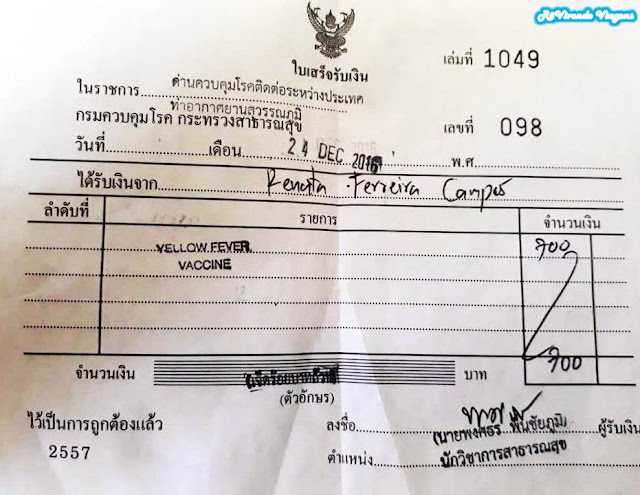 R&Vivendo Viagens
ใบเสร็จรับเงิน
เล่มที่ 1049
ในราชการ ด่านควบคุมโรคติดต่อระหว่างประเทศ
ท่าอากาศยานสุวรรณภูมิ
กรมควบคุมโรค กระทรวงสาธารณสุข
เลขที่ 098
วันที่ เดือน 24 DEC 2016 พ.ศ.
ได้รับเงินจาก Renata Ferreira Campos
ลำดับที่ รายการ จำนวนเงิน
YELLOW FEVER 700
VACCINE
จำนวนเงิน เจ็ดร้อยบาทถ้วน บาท 700
(ตัวอักษร)
ไว้เป็นการถูกต้องแล้ว
ลงชื่อ ผู้รับเงิน
(นายพงศธร พื้นชัยภูมิ)
2557
ตำแหน่ง นักวิชาการสาธารณสุข